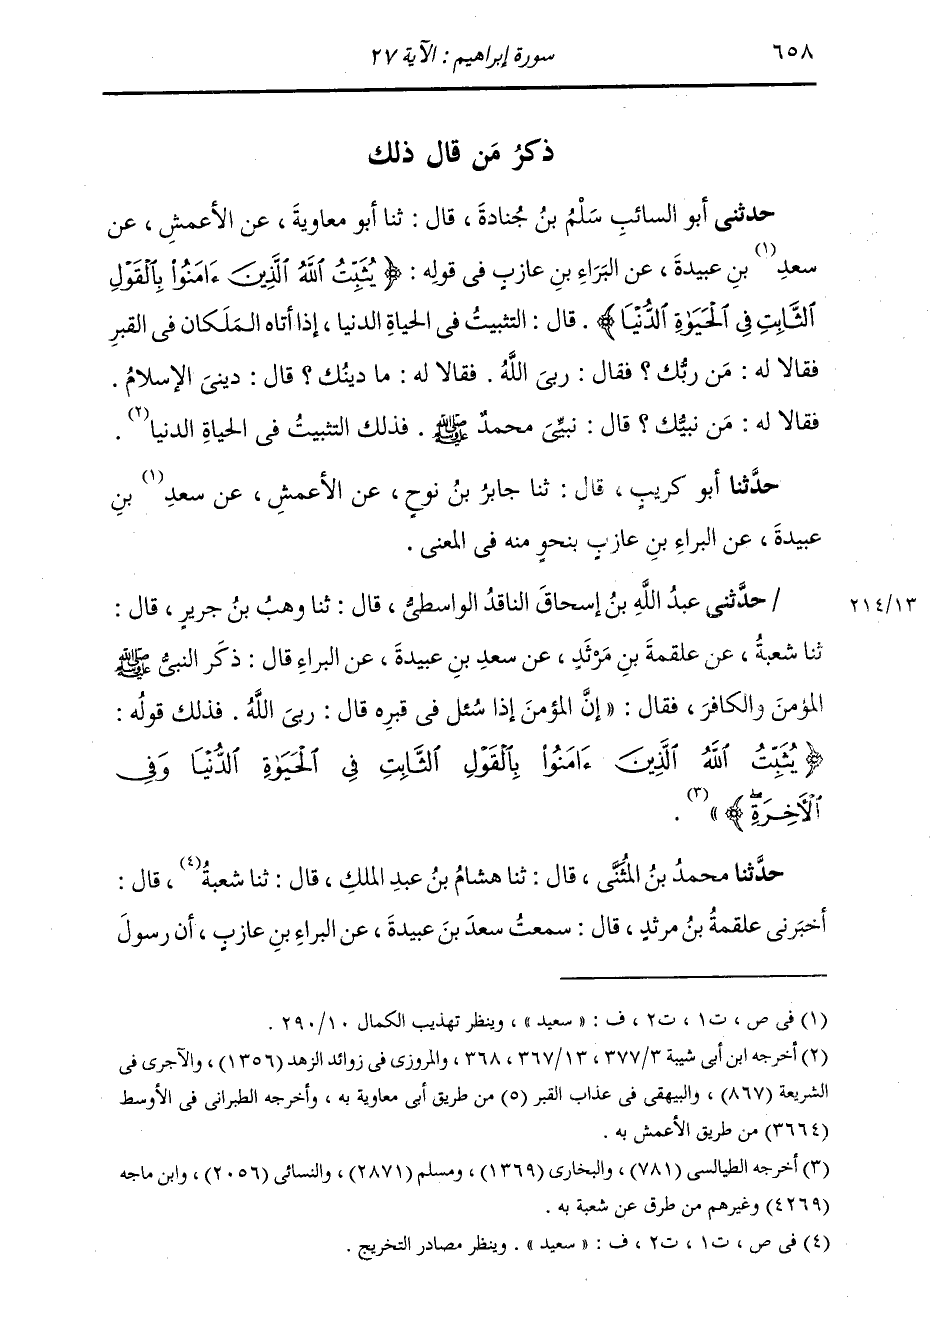 ٦٥٨ سورة إبراهيم : الآية ٢٧
ذكرُ مَن قال ذلك
حدثنى أبو السائبِ سَلْمُ بنُ جُنادةَ ، قال : ثنا أبو معاويةَ ، عن الأعمشِ ، عن
سعدِ(١) بنِ عبيدةَ ، عن البَرَاءِ بنِ عازبٍ فى قولِه : ﴿ يُثَبِّتُ ٱللَّهُ ٱلَّذِينَ ءَامَنُوا۟ بِٱلْقَوْلِ
ٱلثَّابِتِ فِي ٱلْحَيَوٰةِ ٱلدُّنْيَا ﴾ . قال : التثبيتُ فى الحياةِ الدنيا ، إذا أتاه المَلَكان فى القبرِ
فقالا له : مَن ربُّك ؟ فقال : ربىَ اللَّهُ . فقالا له : ما دينُك ؟ قال : دينىَ الإسلامُ .
فقالا له : مَن نبيُّك ؟ قال : نبيِّىَ محمدٌ ﷺ . فذلك التثبيتُ فى الحياةِ الدنيا(٢) .
حدَّثنا أبو كريبٍ ، قال : ثنا جابرُ بنُ نوحٍ ، عن الأعمشِ ، عن سعدِ(١) بنِ
عبيدةَ ، عن البراءِ بنِ عازبٍ بنحوٍ منه فى المعنى .
/ حدَّثنى عبدُ اللَّهِ بنُ إسحاقَ الناقدُ الواسطىُّ ، قال : ثنا وهبُ بنُ جريرٍ ، قال : ٢١٤/١٣
ثنا شعبةُ ، عن علقمةَ بنِ مَرْثَدٍ ، عن سعدِ بنِ عبيدةَ ، عن البراءِ قال : ذكَر النبىُّ ﷺ
المؤمنَ والكافرَ ، فقال : « إنَّ المؤمنَ إذا سُئل فى قبرِه قال : ربىَ اللَّهُ . فذلك قولُه :
﴿ يُثَبِّتُ ٱللَّهُ ٱلَّذِينَ ءَامَنُوا۟ بِٱلْقَوْلِ ٱلثَّابِتِ فِي ٱلْحَيَوٰةِ ٱلدُّنْيَا وَفِي
ٱلْأَخِرَةِۖ ﴾ »(٣) .
حدَّثنا محمدُ بنُ المُثَنَّى ، قال : ثنا هشامُ بنُ عبدِ الملكِ ، قال : ثنا شعبةُ(٤) ، قال :
أخبَرنى علقمةُ بنُ مرثدٍ ، قال : سمعتُ سعدَ بنَ عبيدةَ ، عن البراءِ بنِ عازبٍ ، أن رسولَ
(١) فى ص ، ت١ ، ت٢ ، ف : « سعيد » ، وينظر تهذيب الكمال ٢٩٠/١٠ .
(٢) أخرجه ابن أبى شيبة ٣٧٧/٣ ، ٣٦٧/١٣ ، ٣٦٨ ، والمروزى فى زوائد الزهد (١٣٥٦) ، والآجرى فى
الشريعة (٨٦٧) ، والبيهقى فى عذاب القبر (٥) من طريق أبى معاوية به ، وأخرجه الطبرانى فى الأوسط
(٣٦٦٤) من طريق الأعمش به .
(٣) أخرجه الطيالسى (٧٨١) ، والبخارى (١٣٦٩) ، ومسلم (٢٨٧١) ، والنسائى (٢٠٥٦) ، وابن ماجه
(٤٢٦٩) وغيرهم من طرق عن شعبة به .
(٤) فى ص ، ت١ ، ت٢ ، ف : « سعيد » . وينظر مصادر التخريج .